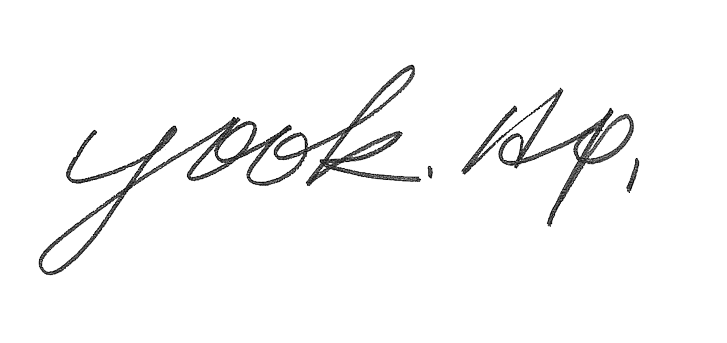 yook. sp,